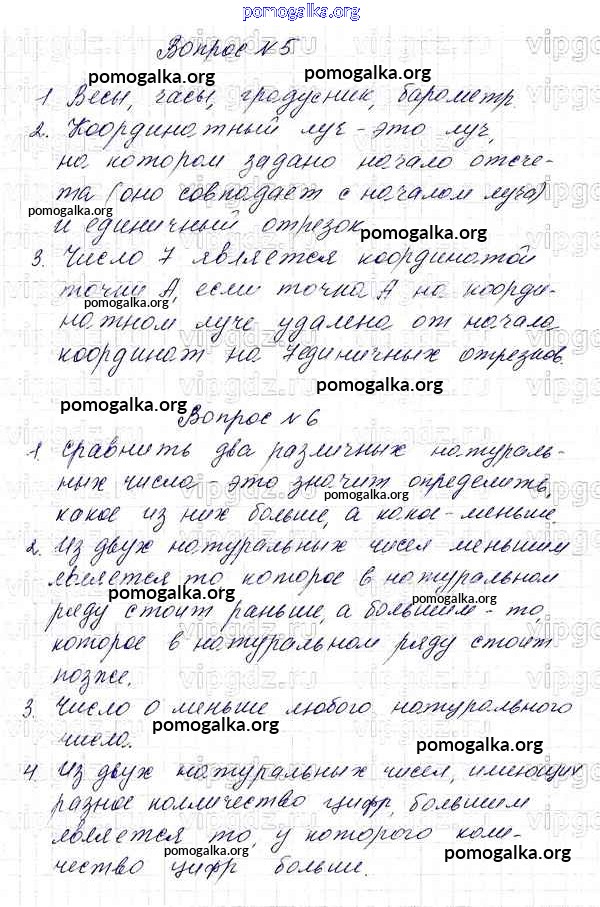 pomogalka.org
Вопрос №5
pomogalka.org pomogalka.org
1. Весы, часы, градусник, барометр
2. Координатный луч - это луч,
на котором задано начало отсче-
та (оно совпадает с началом луча)
pomogalka.org
и единичный отрезок
pomogalka.org
3. Число 7 является координатой
точки А, если точка А на коорди-
pomogalka.org
натном луче удалена от начала
координат на 7единичных отрезков.
pomogalka.org
pomogalka.org
Вопрос №6
1. Сравнить два различных натураль-
ных числа - это значит определить,
pomogalka.org
какое из них больше, а какое - меньше.
2. Из двух натуральных чисел меньшим
является то которое в натуральном
pomogalka.org pomogalka.org
ряду стоит раньше, а большим - то,
которое в натуральном ряду стоит
позже.
3. Число 0 меньше любого натурального
pomogalka.org
числа.
pomogalka.org
4. Из двух натуральных чисел, имеющих
разное колличество цифр, большим
pomogalka.org
является то, у которого коли-
pomogalka.org pomogalka.org
чество цифр больше.